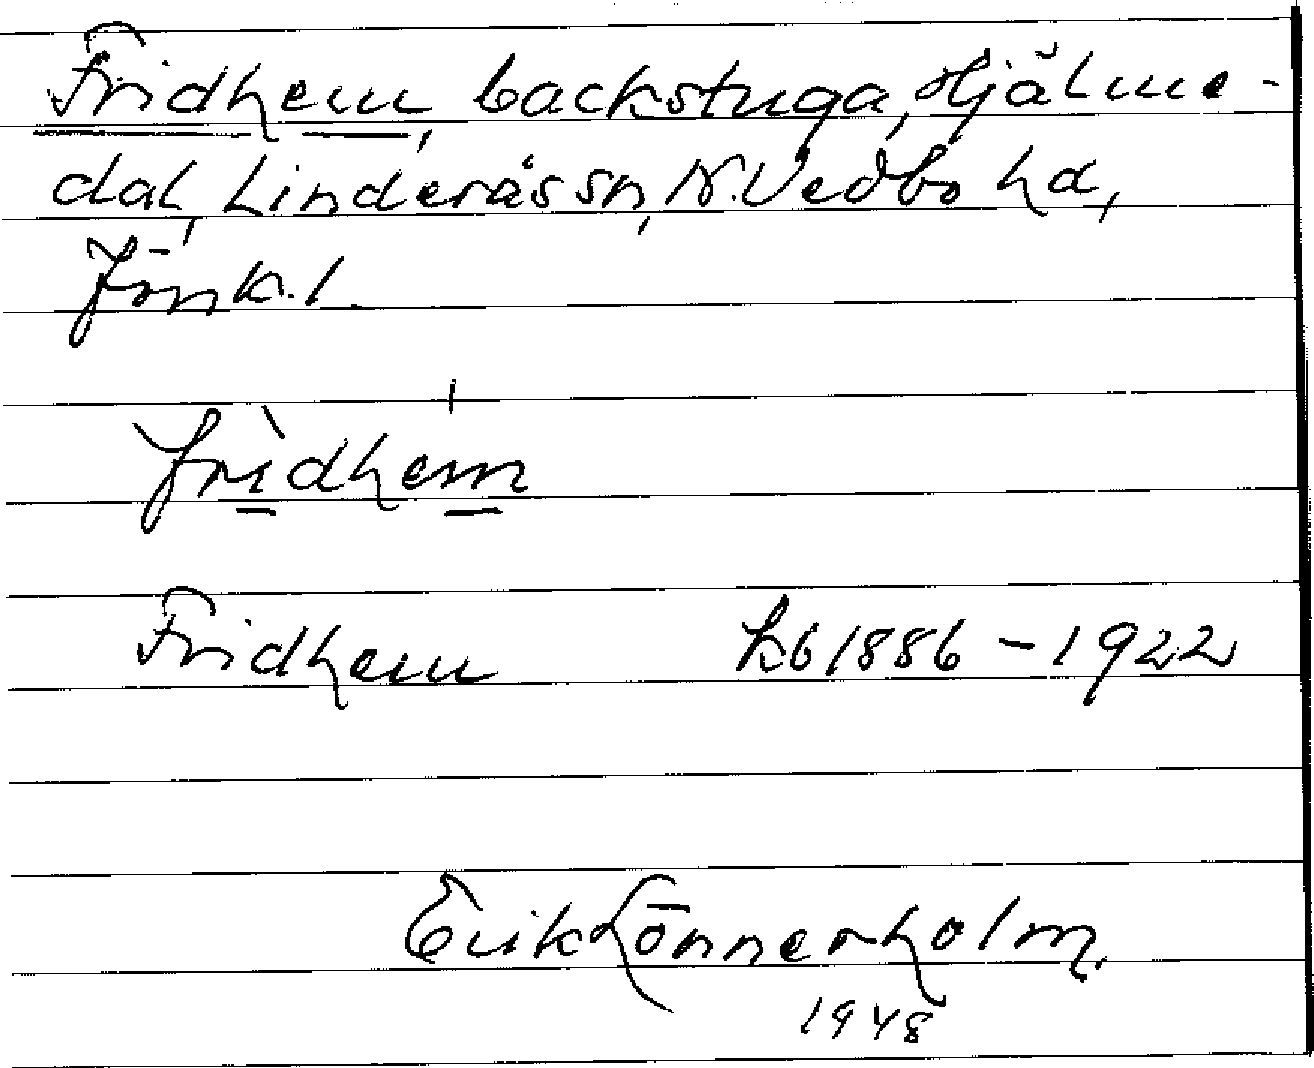 Fridhem, backstuga, Hjälme-
dal, Linderås sn, N. Vedbo hd,
Jönk. l.
frìdhém
Fridhem kb 1886-1922
Erik Lönnerholm.
1948